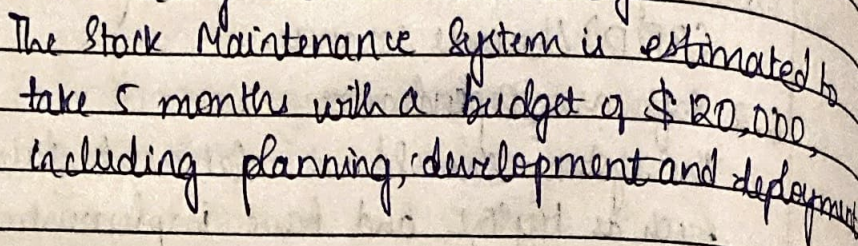 The Stock Maintenance System is estimated to
take 5 months with a budget of $ 120,000,
including planning, development and deployment